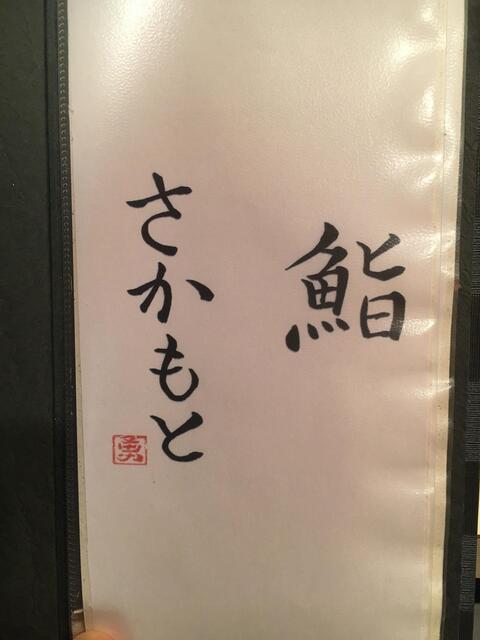 鮨
さかもと
勇